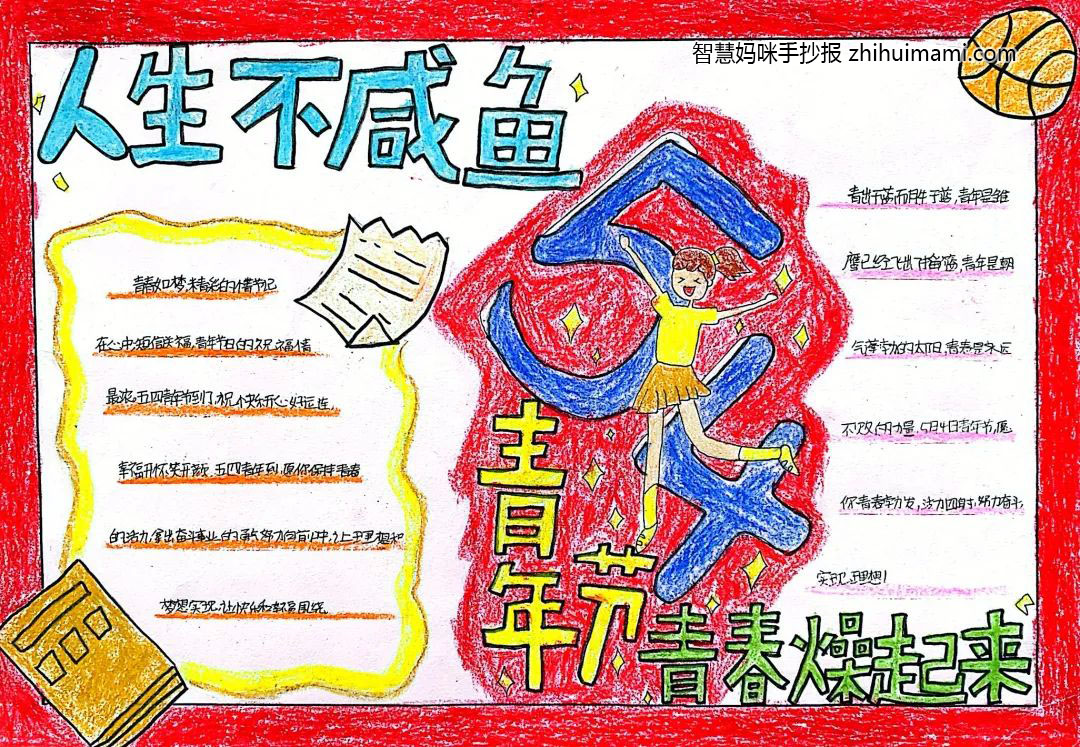 智慧妈咪手抄报 zhihuimami.com
人生不咸鱼
青春如梦
在心中,短信送福,青年节日的祝福情
最浓,五四青年节到了,祝你快乐开心好运连,
幸福开怀笑开颜,五四青年到,愿你保持青春
的活力,拿出奋斗事业的勇气,努力向前冲,让理想和
梦想实现,让快乐和围绕.
青年节
青出于蓝而胜于蓝,青年是雏
鹰已经飞出,青年是朝
气蓬勃的太阳,青春是永远
不败的力量,5月4日青年节,愿
你青春勃发,活力四射,努力奋斗,
实现理想!
青春燥起来